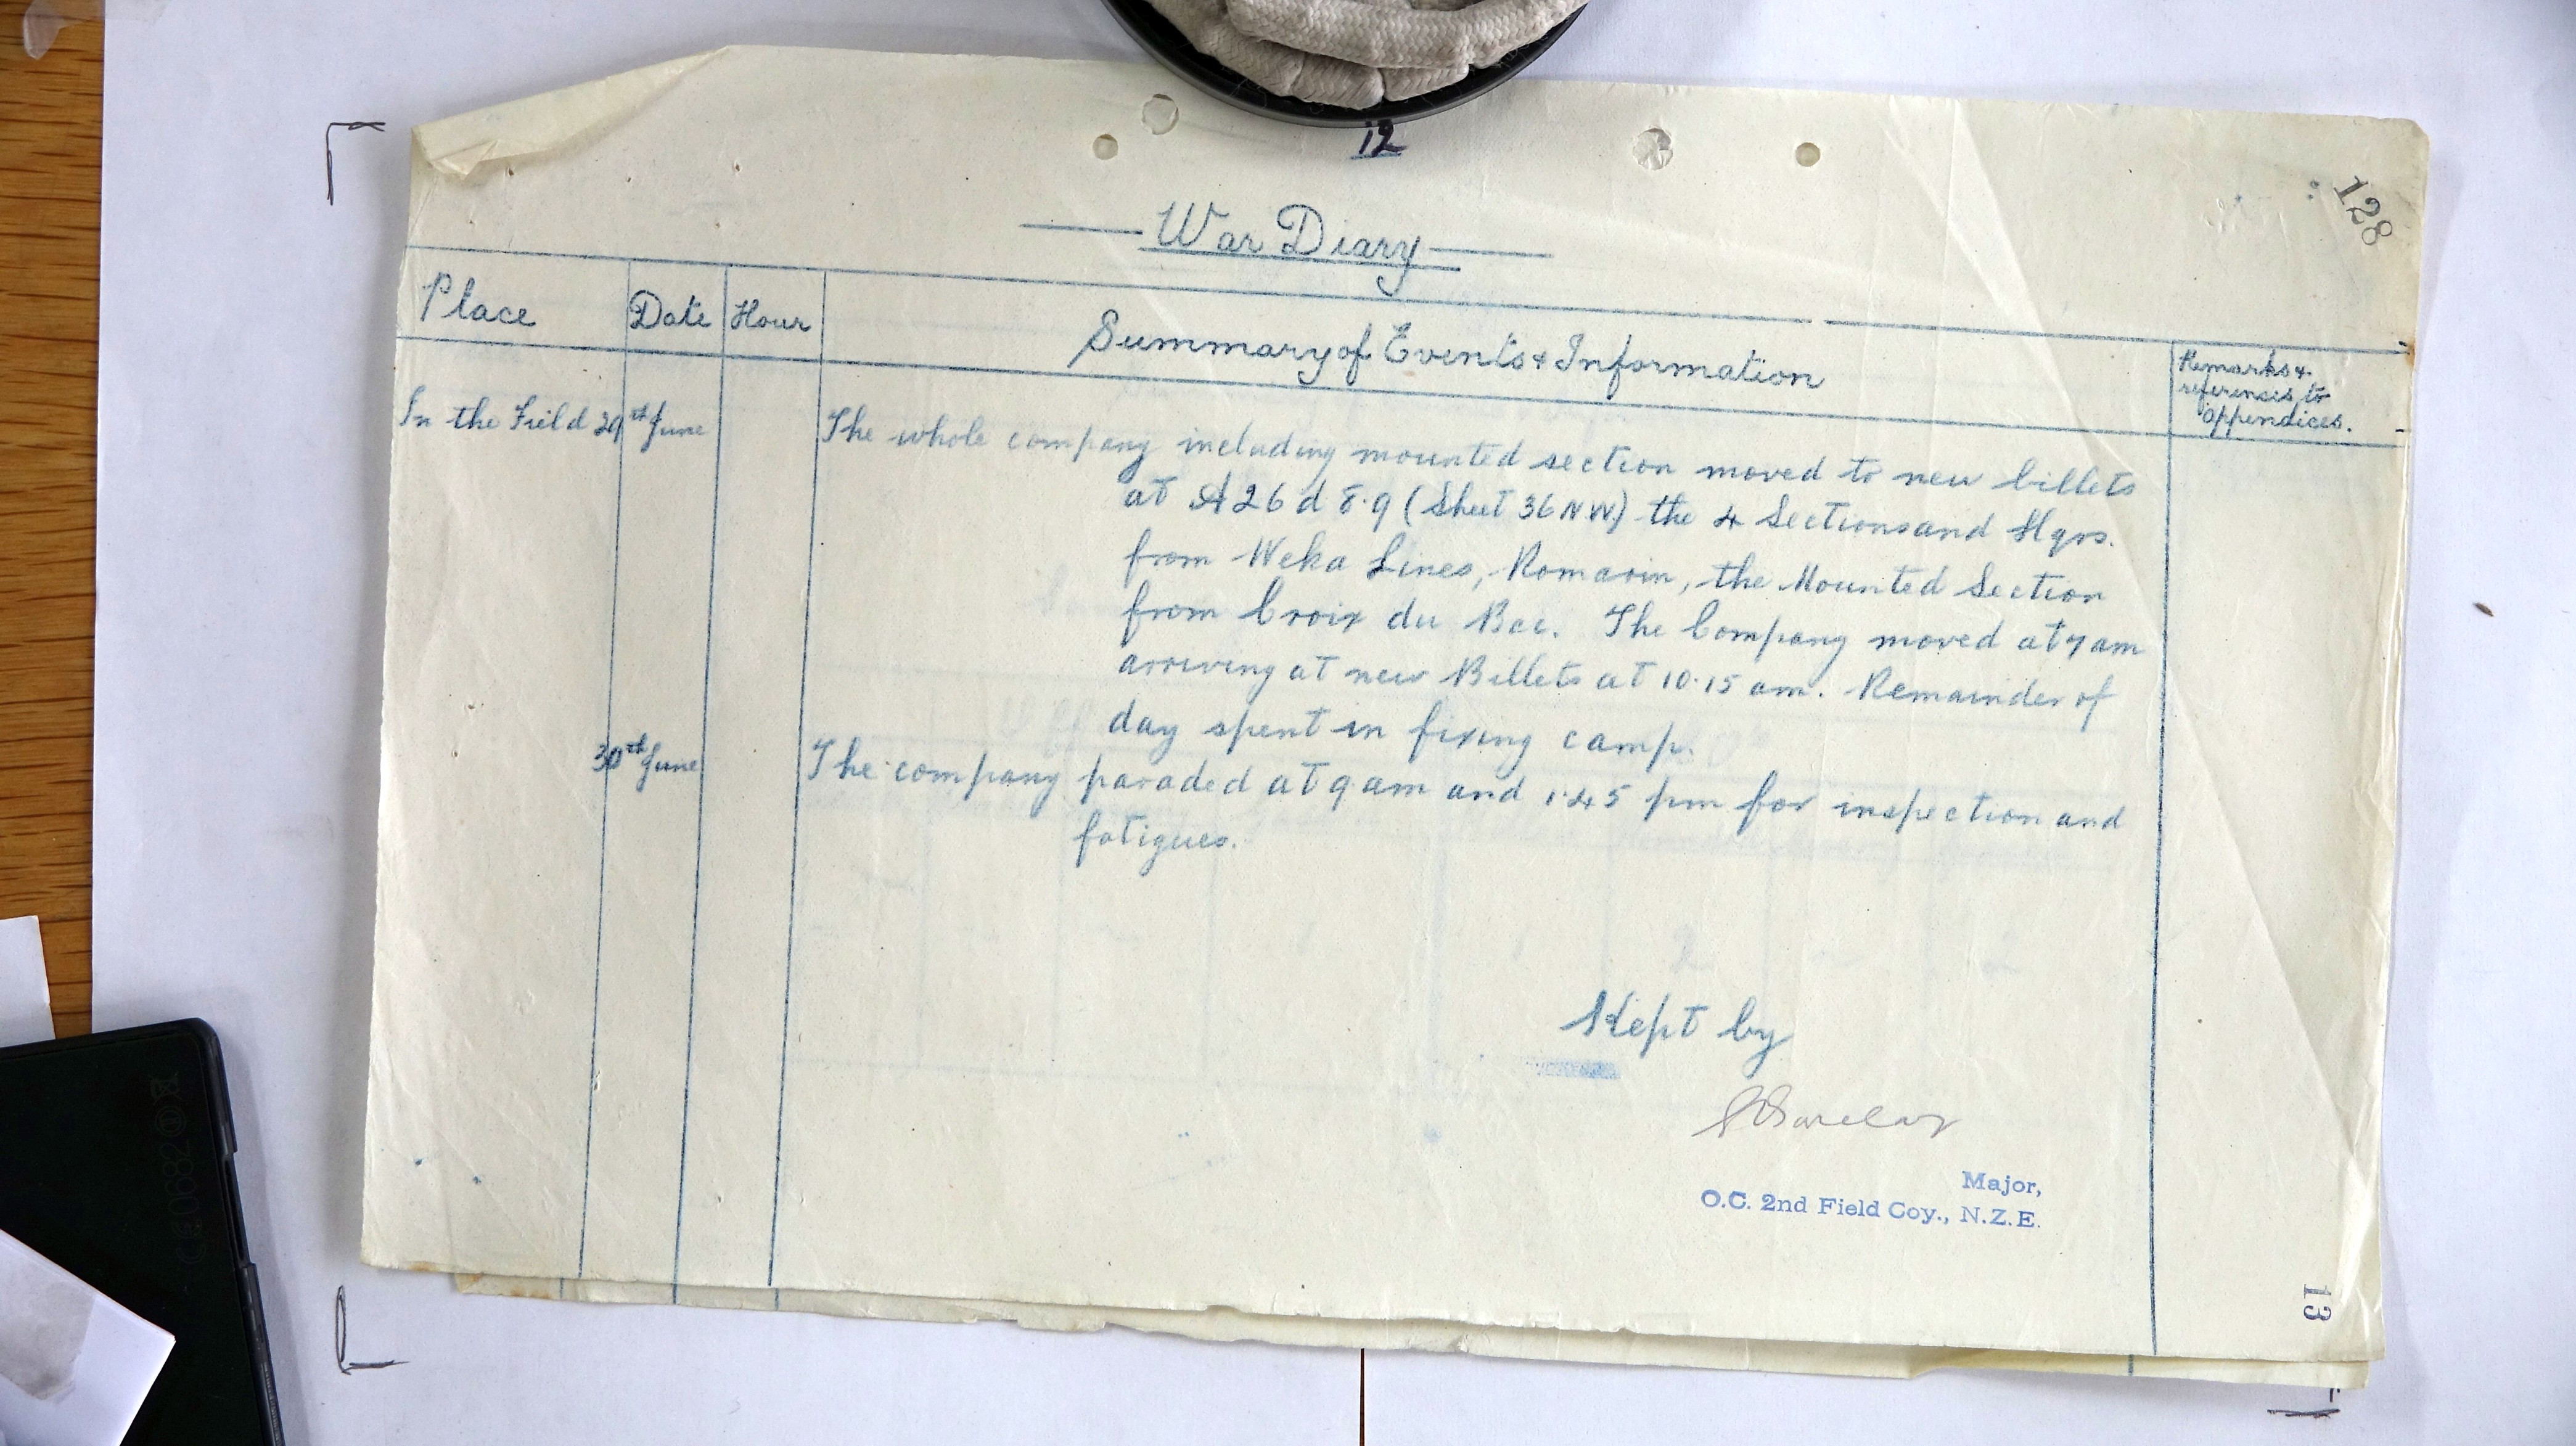 12
128
War Diary
Place Date Hour Summary of Events & Information Remarks & references to appendices.
In the Field 29th June The whole company including mounted section moved to new billets
at A 26 d 8.9 (Sheet 36 NW) the 4 Sections and Hqrs.
from Weka Lines, Romarin, the Mounted Section
from Croix du Bac. The Company moved at 7 am
arriving at new Billets at 10.15 am. Remainder of
day spent in fixing camp.
30th June The company paraded at 9 am and 1.45 pm for inspection and
fatigues.
Kept by
Barclay
Major,
O.C. 2nd Field Coy., N.Z.E.
13